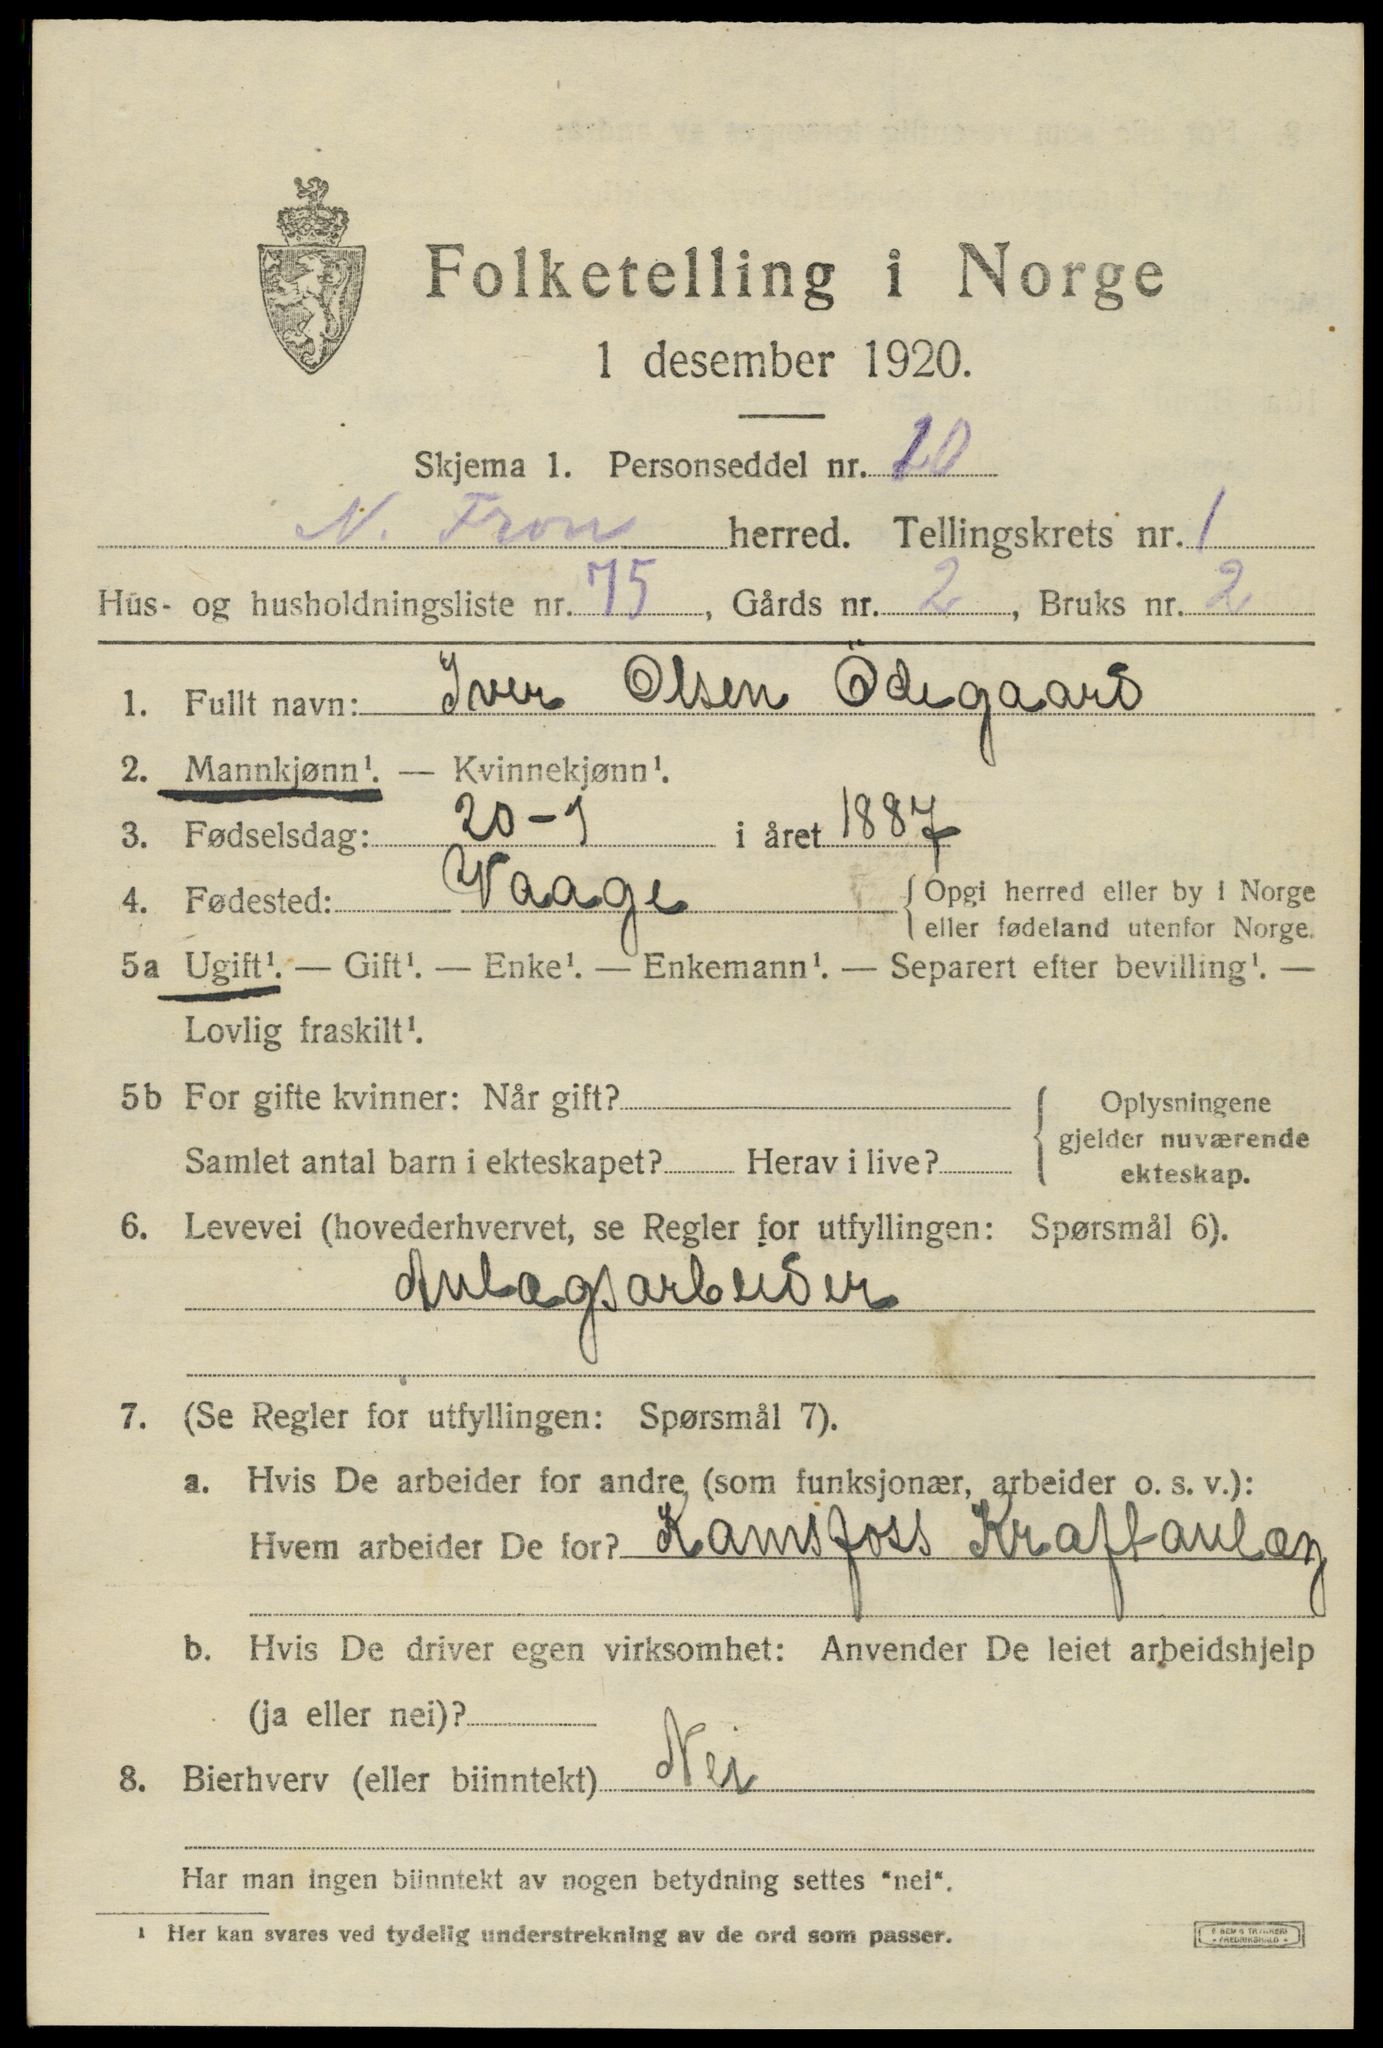 Folketelling i Norge
1 desember 1920.
Skjema 1. Personseddel nr. 10
N. Fron herred. Tellingskrets nr. 1
Hus- og husholdningsliste nr. 75, Gårds nr. 2, Bruks nr. 2
1. Fullt navn: Iver Olsen Ödegaard
2. Mannkjønn¹. — Kvinnekjønn¹.
3. Fødselsdag: 20-1 i året 1887
4. Fødested: Vaage { Opgi herred eller by i Norge
eller fødeland utenfor Norge.
5a Ugift¹. — Gift¹. — Enke¹. — Enkemann¹. — Separert efter bevilling¹. —
Lovlig fraskilt¹.
5b For gifte kvinner: Når gift? { Oplysningene
gjelder nuværende
Samlet antal barn i ekteskapet? Herav i live?
ekteskap.
6. Levevei (hovederhvervet, se Regler for utfyllingen: Spørsmål 6).
Anlægsarbeider
7. (Se Regler for utfyllingen: Spørsmål 7).
a. Hvis De arbeider for andre (som funksjonær, arbeider o. s. v.):
Hvem arbeider De for? Kamsfoss Kraftanlæg
b. Hvis De driver egen virksomhet: Anvender De leiet arbeidshjelp
(ja eller nei)?
8. Bierhverv (eller biinntekt) Nei
Har man ingen biinntekt av nogen betydning settes "nei".
¹ Her kan svares ved tydelig understrekning av de ord som passer.